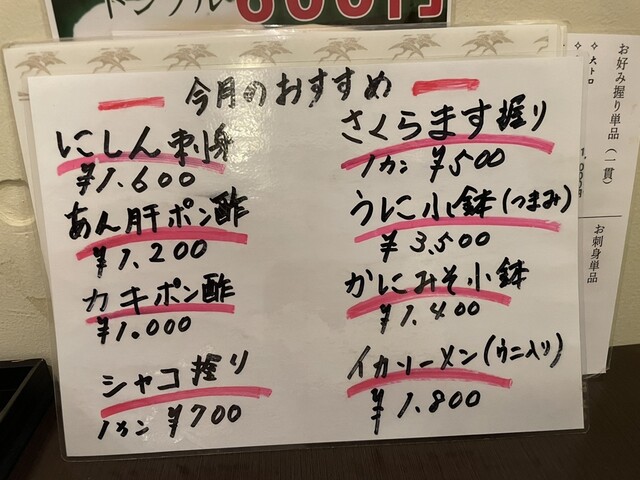 トンプル 600円
今月のおすすめ
にしん刺身
¥1.600
あん肝ポン酢
¥1.200
カキポン酢
¥1.000
シャコ握り
1カン ¥700
さくらます握り
1カン ¥500
うに小鉢(つまみ)
¥3.500
かにみそ小鉢
¥1.400
イカソーメン(ウニ入り)
¥1.800
お好み握り単品(一貫)
✧大トロ
お刺身単品